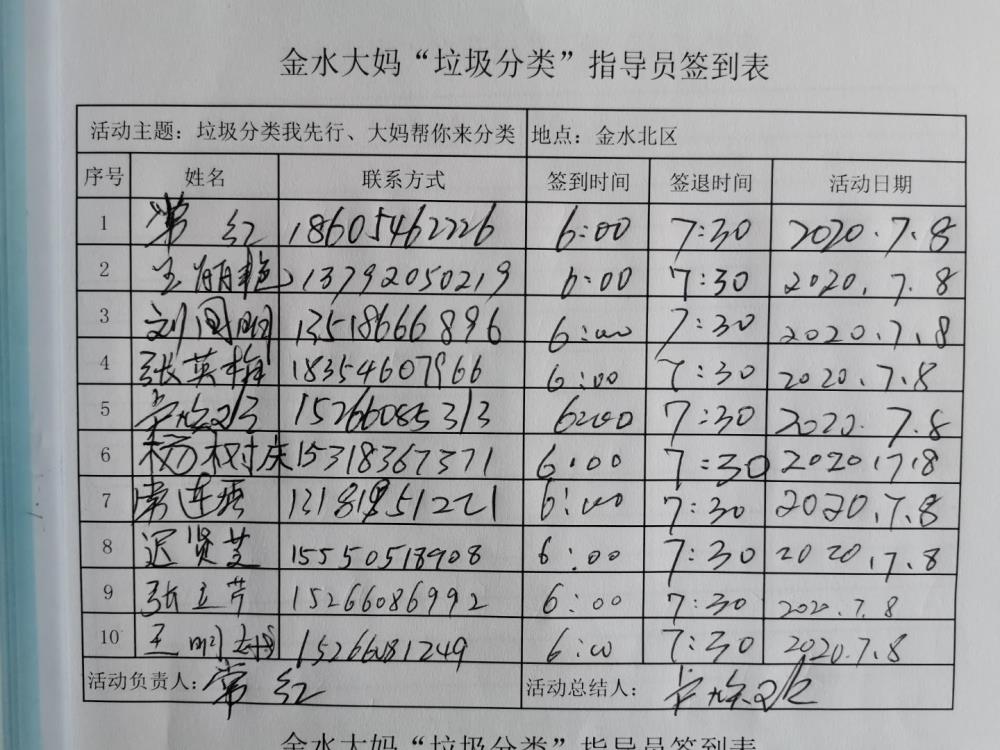 金水大妈“垃圾分类”指导员签到表
活动主题：垃圾分类我先行、大妈帮你来分类 地点：金水北区
序号 姓名 联系方式 签到时间 签退时间 活动日期
1 常红 18605462226 6:00 7:30 2020.7.8
2 王丽艳 13792050219 6:00 7:30 2020.7.8
3 刘国明 13518666896 6:00 7:30 2020.7.8
4 张英梅 18354607966 6:00 7:30 2020.7.8
5 15266085313 6:00 7:30 2020.7.8
6 杨树庆 15318367371 6:00 7:30 2020.7.8
7 常连 13181951221 6:00 7:30 2020.7.8
8 迟贤芝 15550518908 6:00 7:30 2020.7.8
9 张立芹 15266086992 6:00 7:30 2020.7.8
10 王明 15266081249 6:00 7:30 2020.7.8
活动负责人：常红 活动总结人：
金水大妈“垃圾分类”指导员签到表